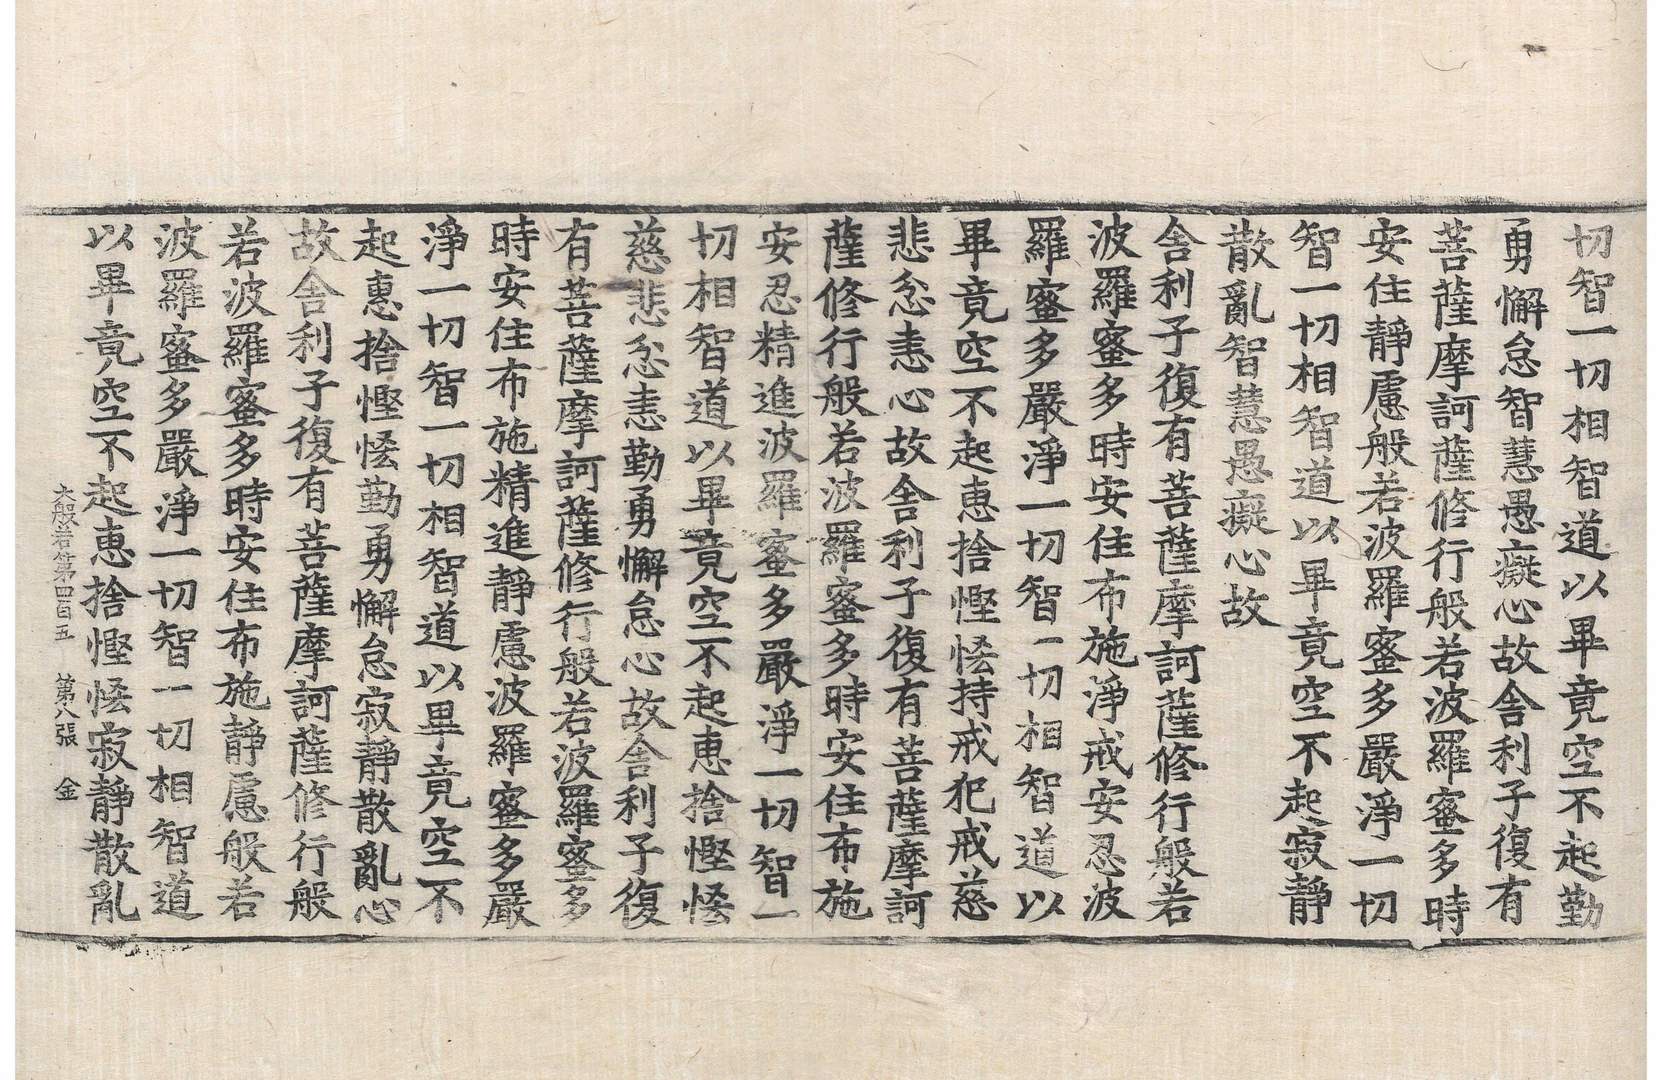 切智一切相智道以畢竟空不起勤
勇懈怠智慧愚癡心故舍利子復有
菩薩摩訶薩修行般若波羅蜜多時
安住靜慮般若波羅蜜多嚴淨一切
智一切相智道以畢竟空不起寂靜
散亂智慧愚癡心故
舍利子復有菩薩摩訶薩修行般若
波羅蜜多時安住布施淨戒安忍波
羅蜜多嚴淨一切智一切相智道以
畢竟空不起惠捨慳悋持戒犯戒慈
悲忿恚心故舍利子復有菩薩摩訶
薩修行般若波羅蜜多時安住布施
安忍精進波羅蜜多嚴淨一切智一
切相智道以畢竟空不起惠捨慳悋
慈悲忿恚勤勇懈怠心故舍利子復
有菩薩摩訶薩修行般若波羅蜜多
時安住布施精進靜慮波羅蜜多嚴
淨一切智一切相智道以畢竟空不
起惠捨慳悋勤勇懈怠寂靜散亂心
故舍利子復有菩薩摩訶薩修行般
若波羅蜜多時安住布施靜慮般若
波羅蜜多嚴淨一切智一切相智道
以畢竟空不起惠捨慳悋寂靜散亂
大般若第四百五 第八張 金